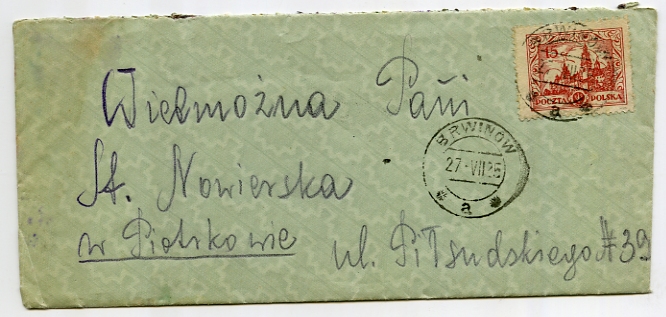 15
POCZTA POLSKA
Wielmożna Pani
BRWINÓW
27-VII 25
* a *
St. Nowierska
w Piotrkowie ul. Piłsudskiego # 39